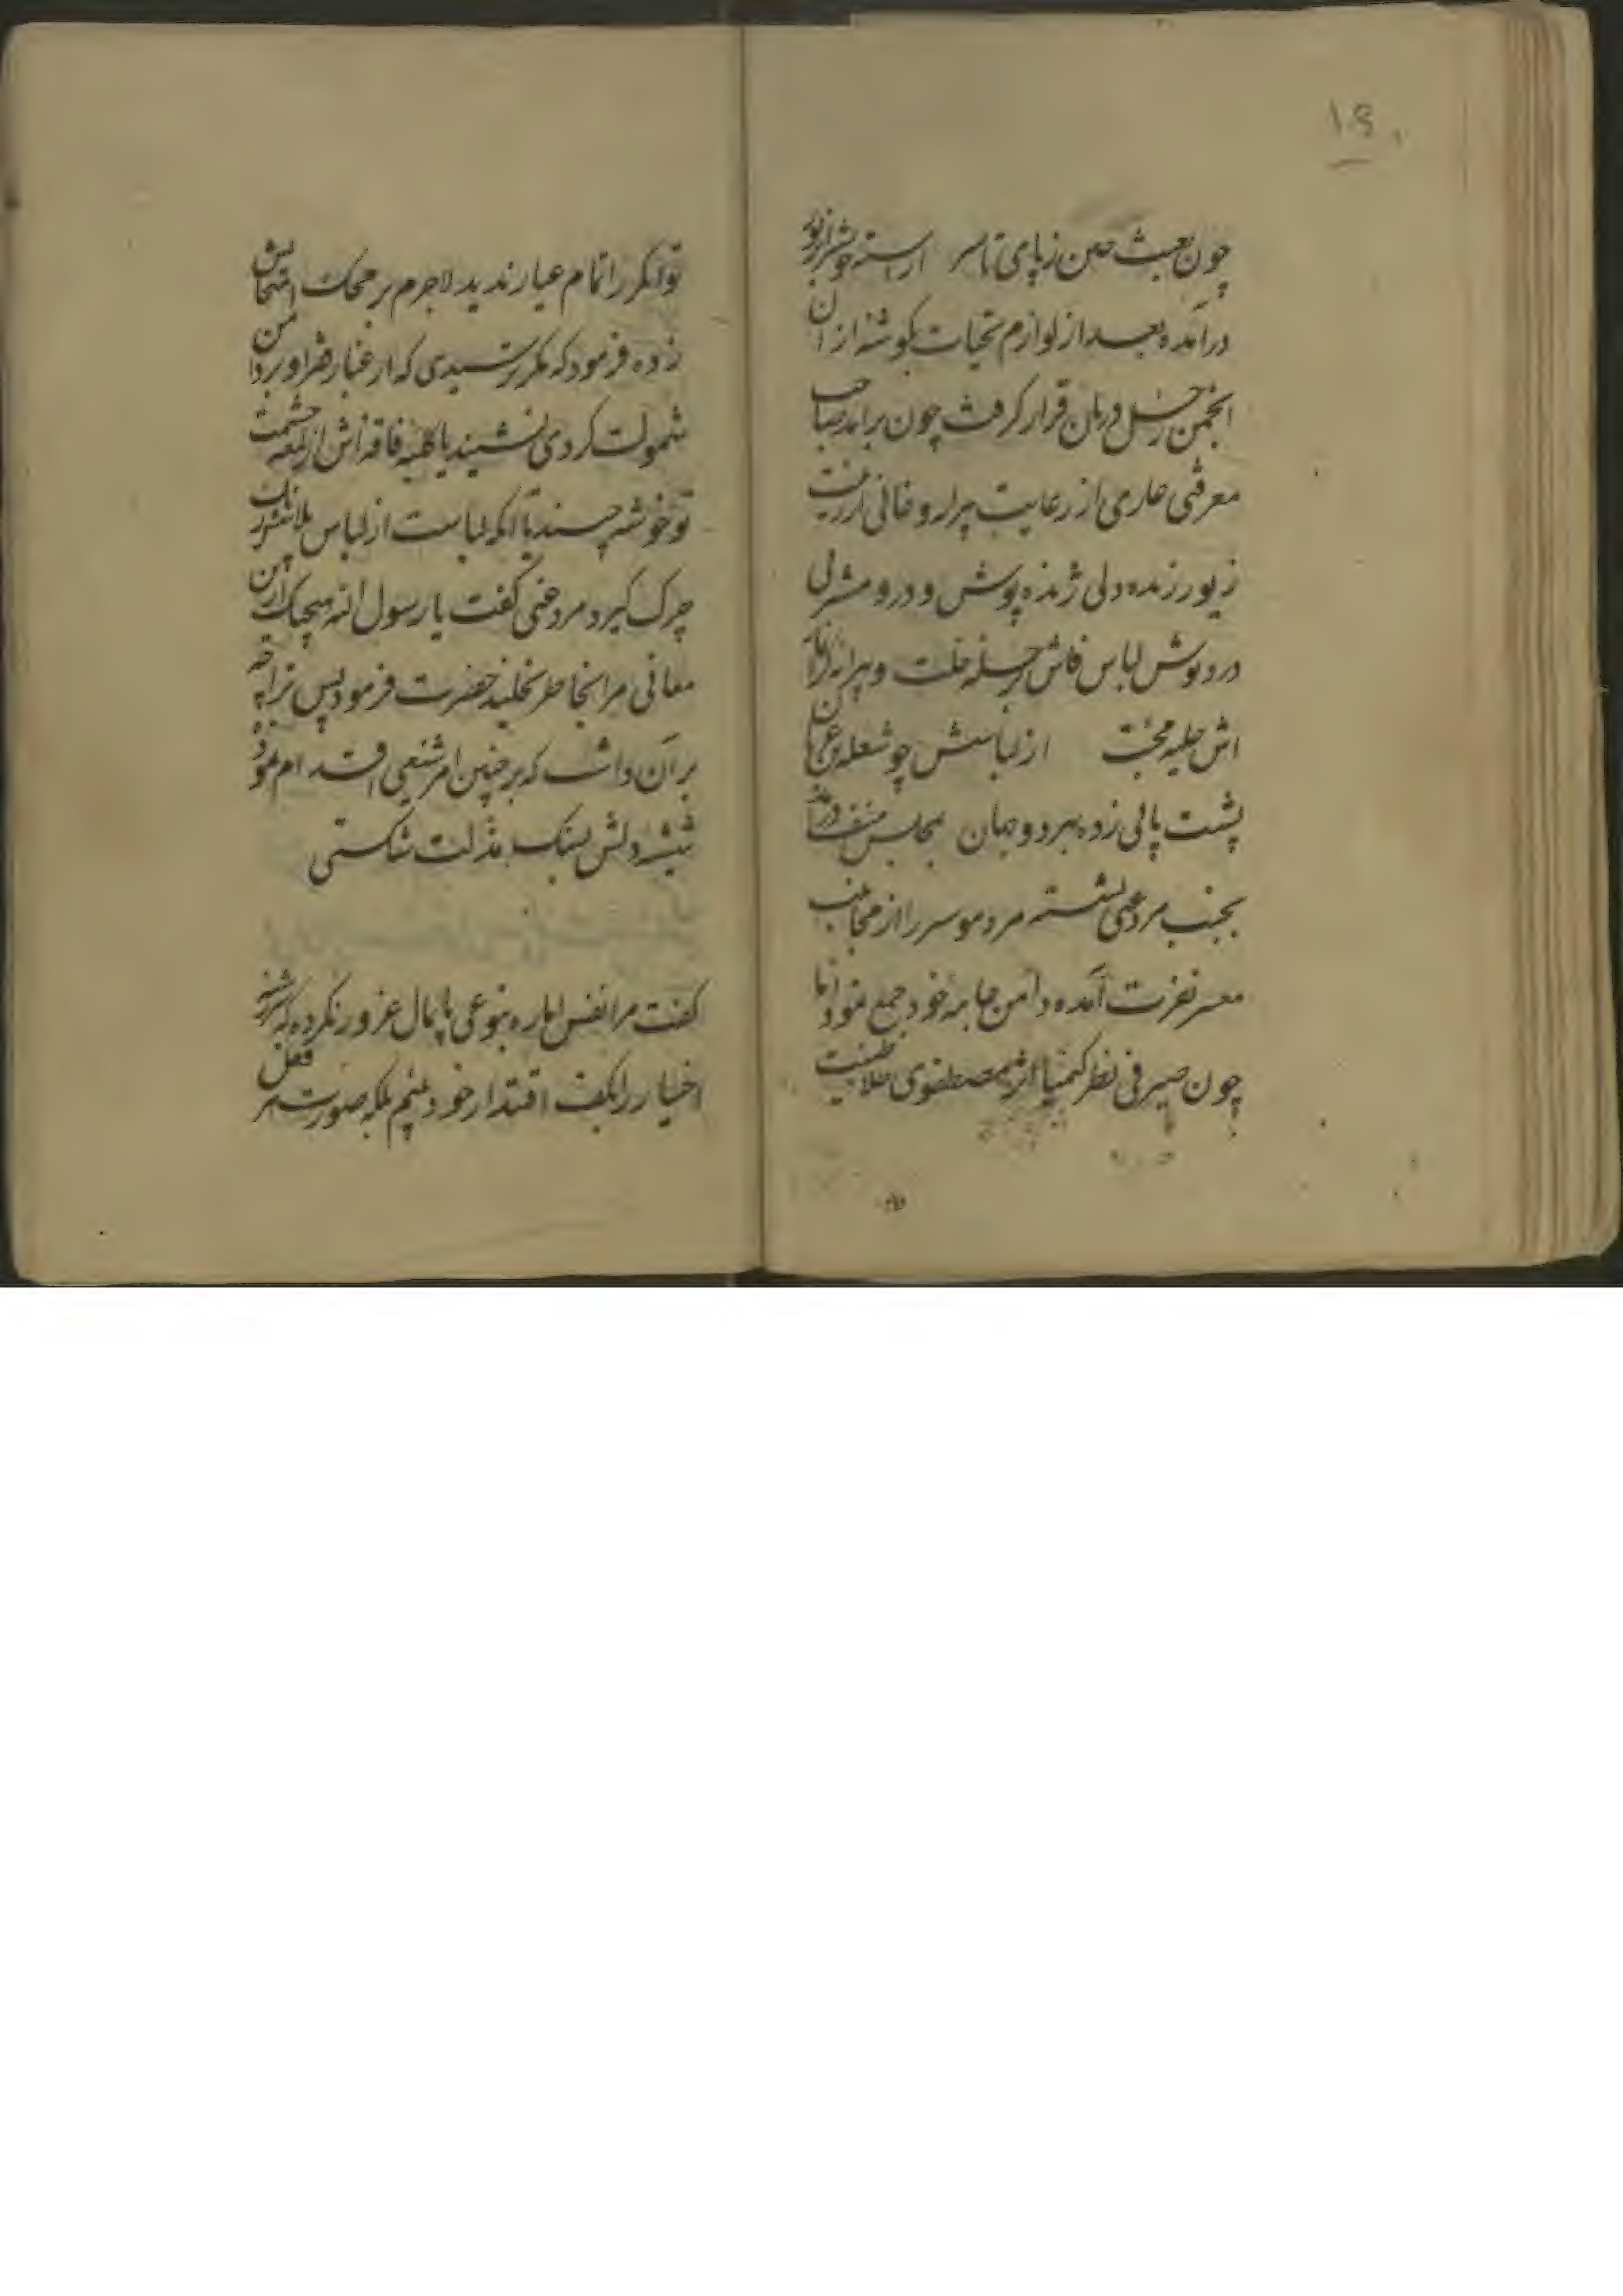 ۱۹
چون لعبت چین ز پای تا سر اراسته خویش را بزیور
درآمده بعد از لوازم تحیات بکوشه از آن
انجمن قرار کرفت چون برامد صاحب
معرفتی عاری از رعایت پیرایه و غافی از زینت
زیور زنده دلی ژنده پوش و درو مشربی
درد نوش لباس فاش خلت و پیرایه
اش حلیه محبت از لباسش چو شعله عریان
پشت پائی زده بهر دو جهان بمجلس درآمد
بجنب مرد غنی نشسته مرد موسر را از مخالطت
معسر نفرت آمده دامن جامه خود جمع نمود اما
چون صیرفی نظر کیمیا اثر مصطفوی طلا طینت
توانکر را تمام عیار ندید لاجرم بر محک امتحانش
زده فرمود که مکر ترسیدی که از غبار فقر او بر دامن
شمولت کردی نشیند یا کلبه فاقه اش از لمعه حشمت
تو خوشه چیند یا انکه لباست از لباس
چرک کیرد مرد غنی کفت یا رسول الله هیچیک ازین
معانی مرا بخاطر نخلید حضرت فرمود پس ترا چه
بر آن داشت که بر چنین امر شنیعی اقدام نمود
شیشه دلش بسنک مذلت شکستی
کفت مرا نفس اماره بنوعی پایمال غرور نکرده که سررشته
اختیار را بکف اقتدار خود بینم بلکه صورت هر فعل